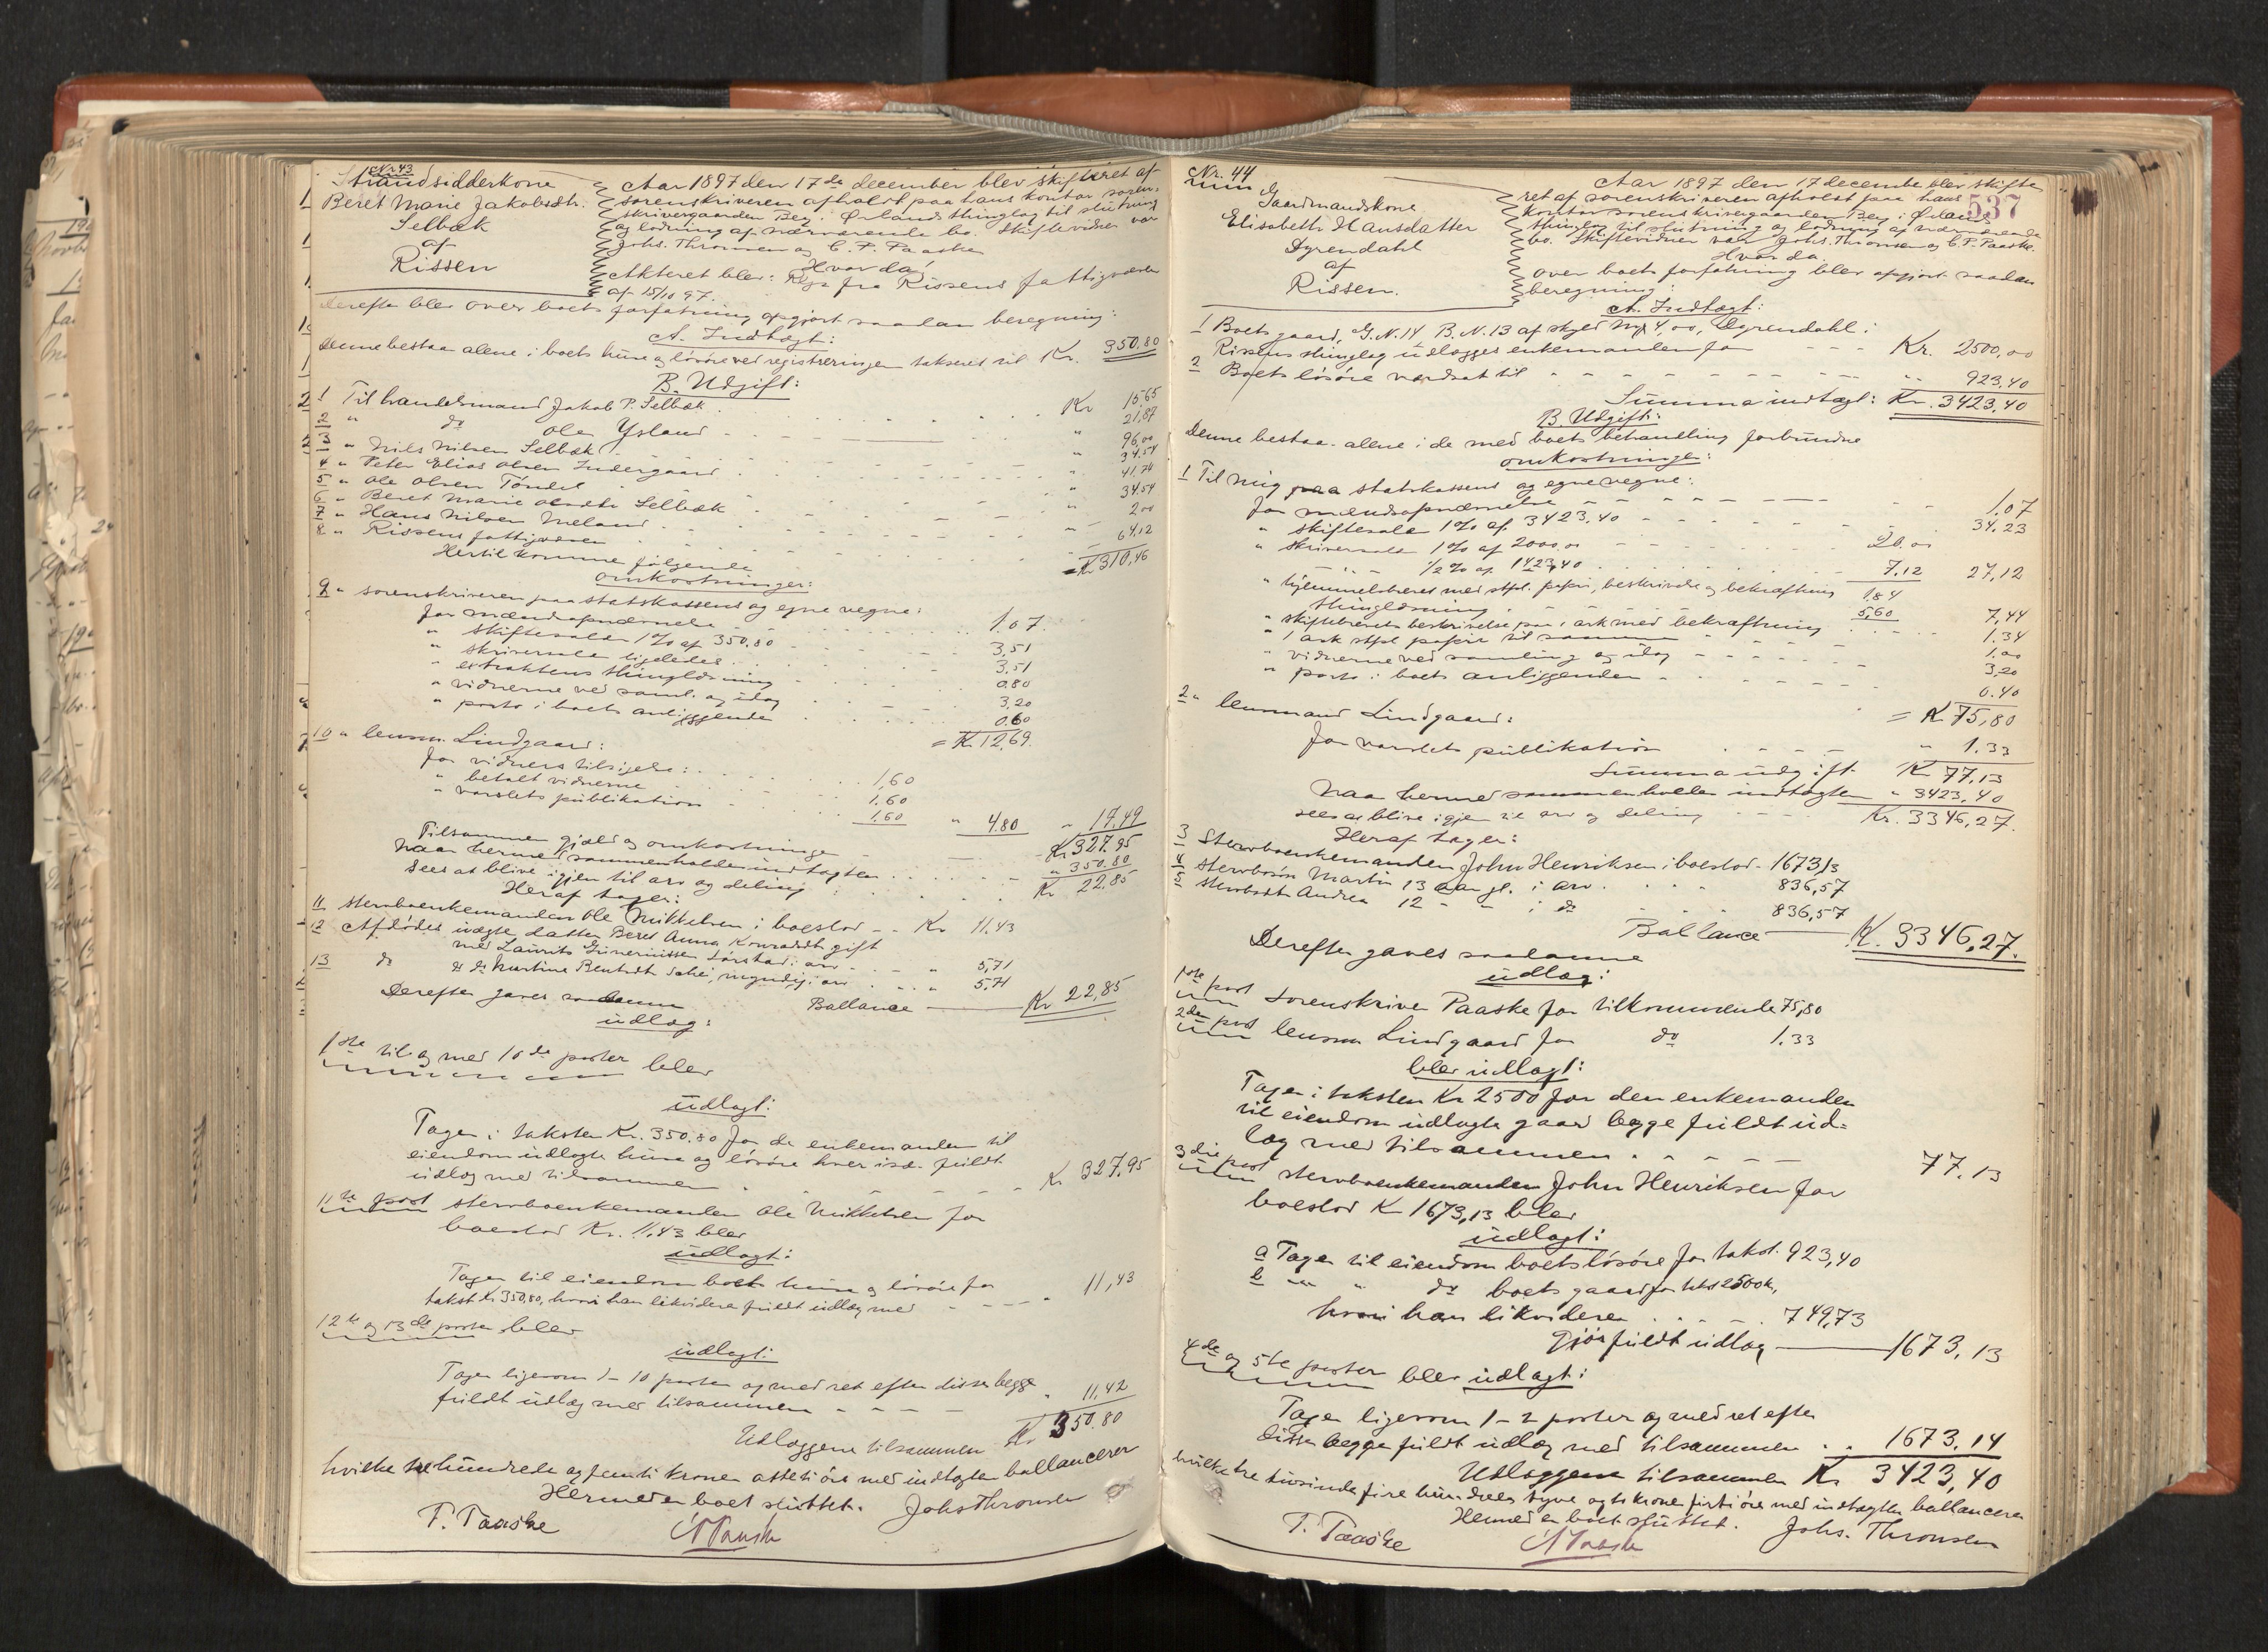 Nr. 43
Strandsidderkone
Beret Marie Jakobsdtr.
Selbæk
af
Rissen
Aar 1897 den 17de december blev skifteret af
sorenskriveren afholdt paa hans kontor soren-
skrivergaarden Bey i Ørlands thinglag til slutning
og lodning af nærværende bo. Skiftevidner var
Johs. Thronsen og C. F. Paaske
Hvor da
Akteret blev: Regn. fra Rissens fattigvæsen
af 15/10 97.
Derefter blev over boets forfatning opgjort saadan beregning:
A. Indtægt:
Denne bestaar alene i boets huse og løsøre ved registreringen takseret til Kr. 350.80
B. Udgift:
1 Til handelsmand Jakob P. Selbæk Kr 15.65
2 " do Ole Ysland " 21,87
3 " Nils Nilsen Selbæk " 96,00
4 " Peter Elias Olsen Indergaard " 34.54
5 " Ole Olsen Tøndel " 41.74
6 " Beret Marie Olsdtr Selbæk " 34.54
7 " Hans Nilsen Meland " 2.00
8 " Rissens fattigvæsen " 64.12
Hertil komme følgende = Kr 310,46
omkostninger:
9 " sorenskriveren paa statskassens og egne vegne:
for mændsopnævnelse 1.07
" skiftesalær 1% af 350.80 3,51
" skriversalær ligeledes 3.51
" extraktens thinglæsning 0.80
" vidnerne ved saml. og idag 3,20
" porto i boets anliggender 0.60
= Kr 12,69.
10 " lensm. Lindgaard:
for vidners tilsigelse: 1,60
" betalt vidnerne 1.60
" varslets publikation 1.60 " 4.80 " 17.49
Tilsammen gjæld og omkostninger Kr 327.95
Naar hermed sammenholdes indtægten " 350.80
sees at blive igjen til arv og deling Kr 22,85
Heraf tager:
11 sterboenkemanden Ole Mikkelsen i boeslod Kr 11.43
12 Afdødes uægte datter Beret Anna Konradsdt. gift
med Laurits Guneriussen Sørstad i arv " 5,71
13 do do do Martine Bentsdt Schei, myndig, i arv " 5.71
Ballance Kr 22,85
Derefter gaves saadanne
udlæg:
1ste til og med 10de poster blev
udlagt:
Tager i taksten Kr. 350.80 for de enkemanden til
eiendom udlagte huse og løsøre hver især fuldt
udlæg med tilsammen Kr 327.95
11te post sterboenkemanden Ole Mikkelsen for
boeslod Kr. 11,43 blev
udlagt:
Tager til eiendom boets huse og løsøre for
takst Kr 350,80, hvori han likviderer fuldt udlæg med " 11,43
12te og 13de poster blev
udlagt:
Tager ligesom 1-10 poster og med ret efter disse begge
fuldt udlæg med tilsammen " 11,42
Udlæggene tilsammen Kr 350.80
hvilke tre hundrede og femti kroner otteti øre med indtægten ballancerer
Hermed er boet sluttet. Johs Thronsen
F. Paaske
C F Paaske
Nr. 44
537
Gaardmandskone
Elisabeth Hansdatter
Dyrendahl
af
Rissen.
Aar 1897 den 17 december blev skifte
ret af sorenskriveren afholdt paa hans
kontor sorenskrivergaarden Bey i Ørlands
thinglag til slutning og lodning af nærværende
bo. Skiftevidner var Johs. Thronsen og C. F. Paaske.
Hvor da
over boets forfatning blev opgjort saadan
beregning:
A. Indtægt:
1 Boets gaard, G.N. 14 B.N. 13 af skyld Mrk 4,00, Dyrendahl i
Rissens thinglag udlægges enkemanden for Kr. 2500,00
2 Boets løsøre værdsat til " 923,40
Summa indtægt: Kr. 3423,40
B Udgift:
Denne bestaar alene i de med boets behandling forbundne
omkostninger:
1 Til mig paa statskassens og egne vegne:
for mændsopnævnelse 1.07
" skiftesalær 1% af 3423.40 34.23
" skriversalær 1% af 2000.00 20.00
" - " - 1/2% af 1423,40 7.12 27,12
" hjemmelsbrevet med stpl. papir, beskrivelse og bekræftning 1.84
thinglæsning 5,60 7,44
" skiftebrevets beskrivelse paa 1 ark med bekræftning 1.34
" 1 ark stpl papir til samme 1.00
" vidnerne ved samling og idag 3,20
" porto i boets anliggender 0.40
= Kr 75,80
2 " lensmand Lindgaard:
for varslets publikation " 1.33
Summa udgift Kr 77.13
Naar hermed sammenholdes indtægten " 3423,40
sees at blive igjen til arv og deling Kr. 3346,27.
Heraf tager:
3 Sterboenkemanden John Henriksen i boeslod 1673,13
4 sterbosøn Martin 13 aar gl. i arv 836,57
5 sterbodt Andrea 12 " " i do 836,57
Ballance Kr. 3346,27.
Derefter gaves saadanne
udlæg:
1ste post Sorenskriver Paaske for tilkommende 75,80
2den post lensm Lindgaard for do 1.33
blev udlagt:
Tager i taksten Kr 2500 for den enkemanden
til eiendom udlagte gaard begge fuldt ud=
læg med tilsammen 77.13
3die post sterboenkemanden John Henriksen for
boeslod Kr 1673,13 blev
udlagt:
a Tager til eiendom boets løsøre for takst. 923,40
b " " do boets gaard for takst 2500 Kr,
hvori han likviderer 749,73
Gjør fuldt udlæg 1673,13
4de og 5te poster blev udlagt:
Tager ligesom 1-2 poster og med ret efter
disse begge fuldt udlæg med tilsammen 1673.14
Udlæggene tilsammen Kr 3423,40
hvilke tre tusinde fire hundrede tyve og tre kroner firti øre med indtægten ballancerer
Hermed er boet sluttet. Johs. Thronsen
F. Paaske
C F Paaske